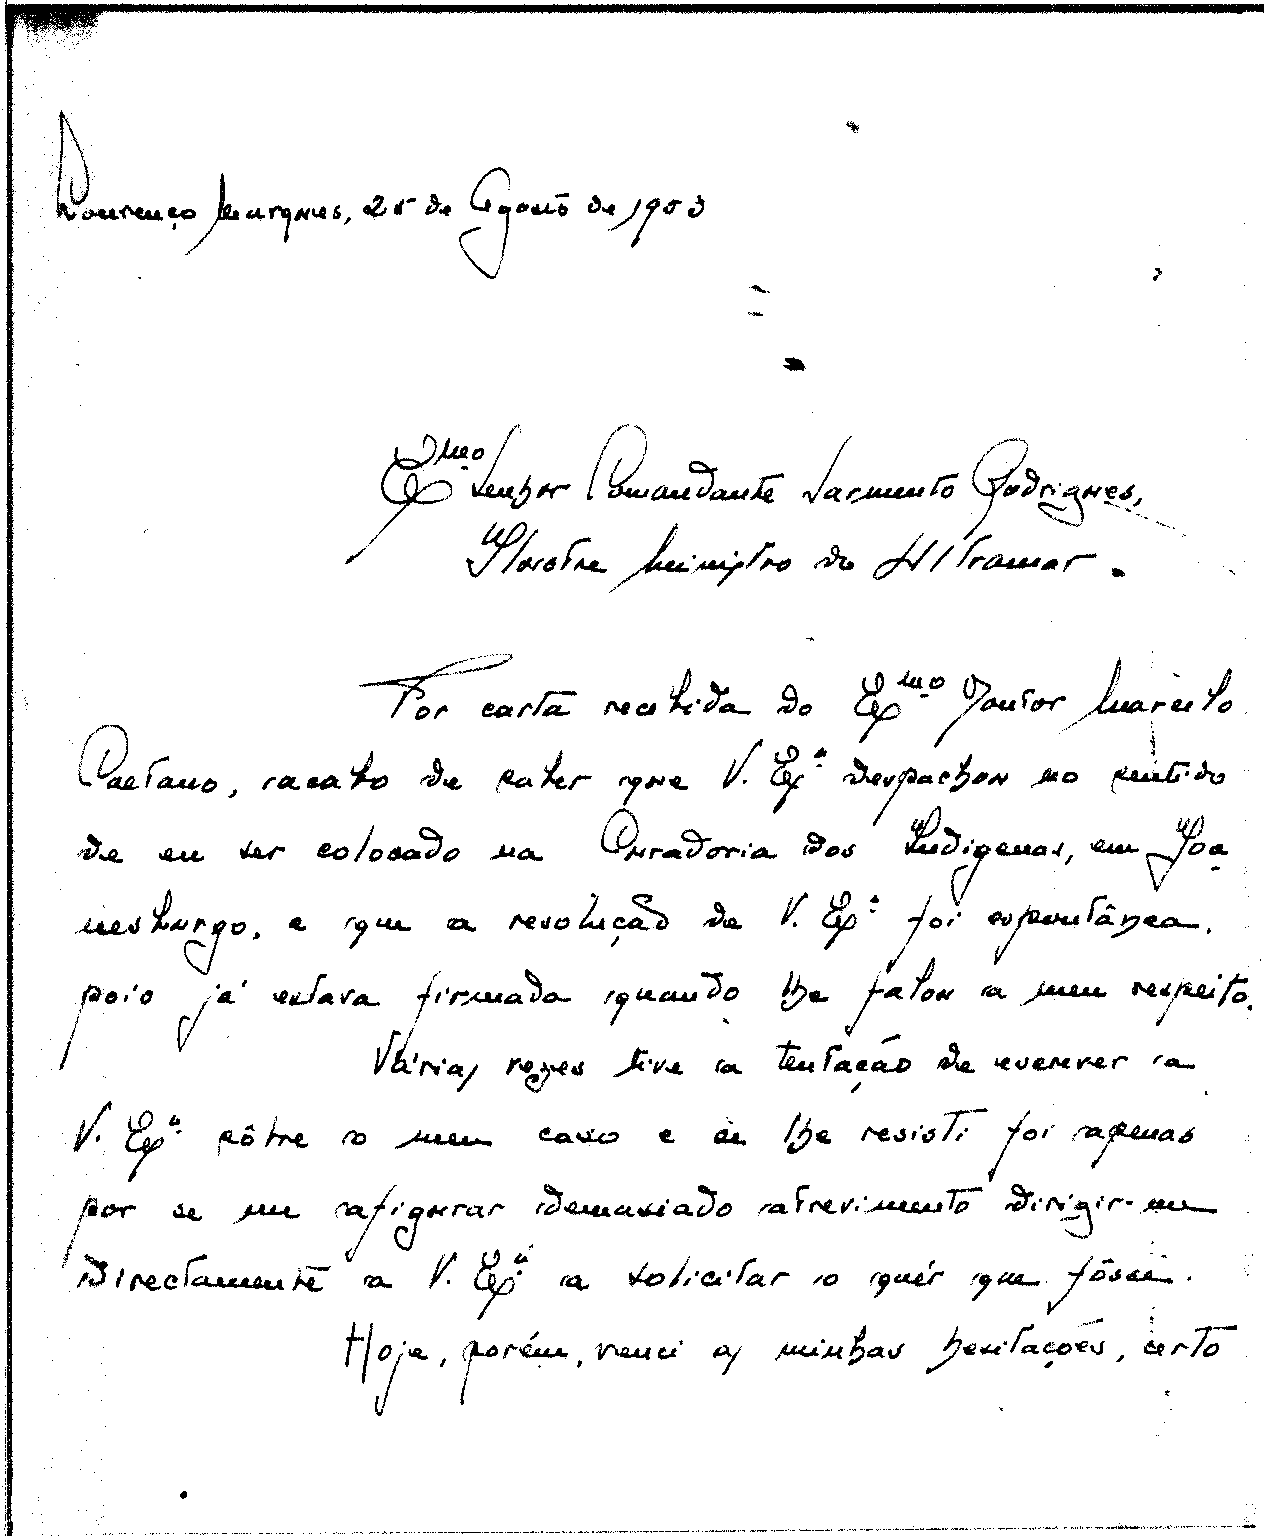 Lourenço Marques, 25 de Agosto de 1953
Exmo Senhor Comandante Sarmento Rodrigues,
Ilustre Ministro do Ultramar.
Por carta recebida do Exmo Doutor Marcelo
Caetano, acabo de saber que V. Exª despachou no sentido
de eu ser colocado na Curadoria dos Indigenas, em Joa
nesburgo, e que a resolução de V. Exª foi espontânea,
pois já estava firmada quando lhe falou a meu respeito.
Várias vezes tive a tentação de escrever a
V. Exª sôbre o meu caso e se lhe resisti foi apenas
por se me afigurar demasiado atrevimento dirigir-me
directamente a V. Exª a solicitar o quer que fôsse.
Hoje, porém, venci as minhas hesitações, certo